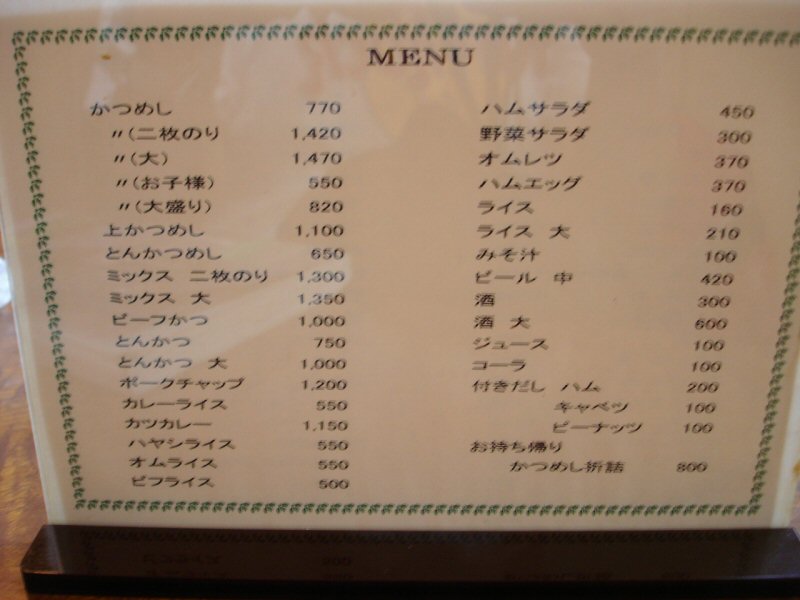 MENU
かつめし 770
〃(二枚のり 1,420
〃(大) 1,470
〃(お子様) 550
〃(大盛り) 820
上かつめし 1,100
とんかつめし 650
ミックス 二枚のり 1,300
ミックス 大 1,350
ビーフかつ 1,000
とんかつ 750
とんかつ 大 1,000
ポークチャップ 1,200
カレーライス 550
カツカレー 1,150
ハヤシライス 550
オムライス 550
ビフライス 500
ハムサラダ 450
野菜サラダ 300
オムレツ 370
ハムエッグ 370
ライス 160
ライス 大 210
みそ汁 100
ビール 中 420
酒 300
酒 大 600
ジュース 100
コーラ 100
付きだし ハム 200
キャベツ 100
ピーナッツ 100
お待ち帰り
かつめし折詰 800